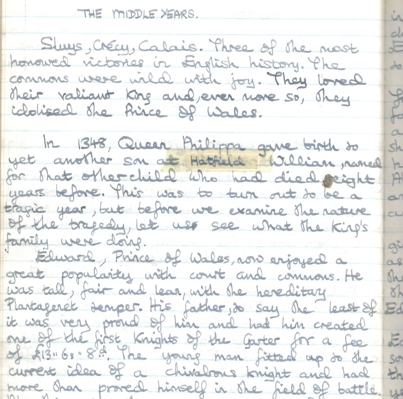 THE MIDDLE YEARS.
Sluys, Crécy, Calais. Three of the most
honoured victories in English history. The
commons were wild with joy. They loved
their valiant King and, even more so, they
idolised the Prince of Wales.
In 1348, Queen Philippa gave birth to
yet another son at Hatfield - William, named
for that other child who had died eight
years before. This was to turn out to be a
tragic year, but before we examine the nature
of the tragedy, let us see what the King's
family were doing.
Edward, Prince of Wales, now enjoyed a
great popularity with court and commons. He
was tall, fair and lean, with the hereditary
Plantagenet temper. His father, to say the least of
it was very proud of him and had him created
one of the first Knights of the Garter for a fee
of £13 - 6s - 8d. The young man fitted up to the
current idea of a chivalrous knight and had
more than proved himself in the field of battle.